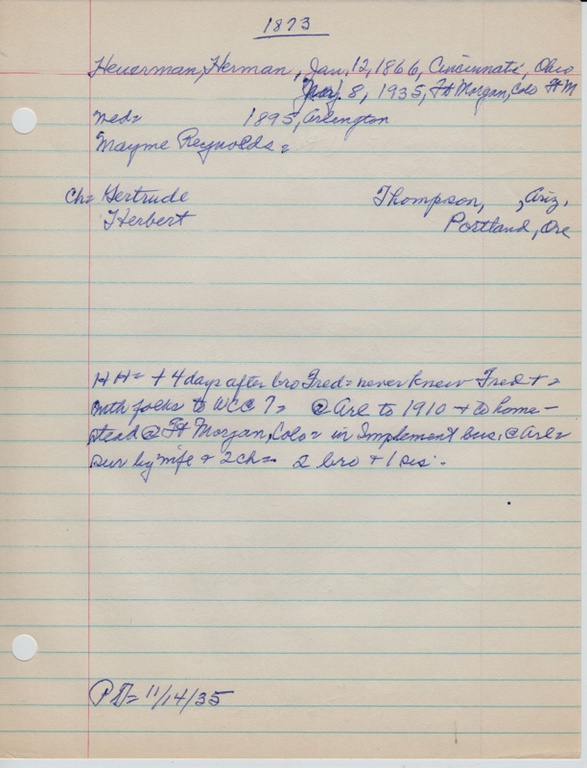 1873
Heuerman, Herman, Jan. 12, 1866, Cincinnati, Ohio
8, 1935, Ft Morgan, Colo Ft M
med= 1895, Arlington
Mayme Reynolds =
Ch= Gertrude Thompson, , Ariz.
Herbert Portland, Ore
HH= + 4 days after bro Fred= never knew Fred + =
with folks to WCC ?= @ Arl to 1910 + to home-
stead @ Ft Morgan, Colo= in Implement bus. @ Arl=
sur by wife + 2 ch= 2 bro + 1 sis.
PD= 11/14/35